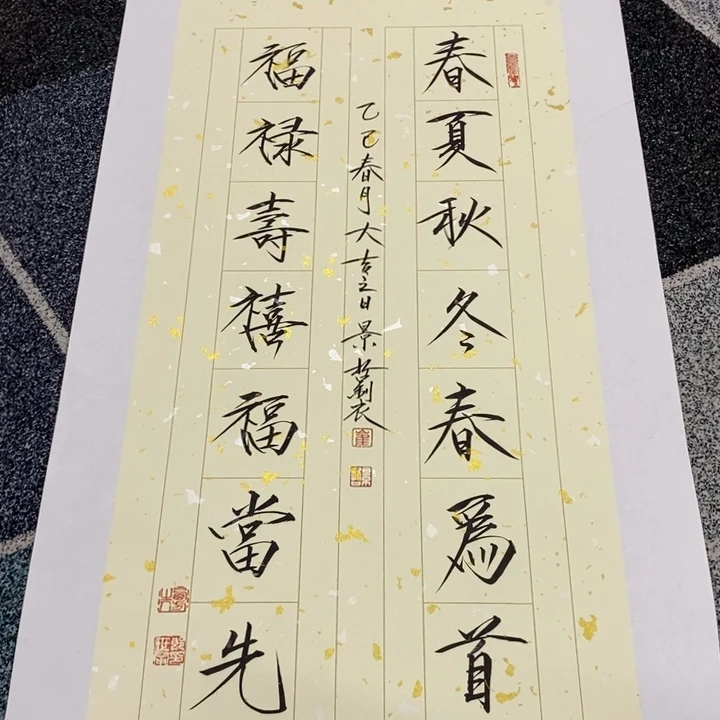 春夏秋冬春為首
福禄壽禧福當先
乙己春月大吉之日景